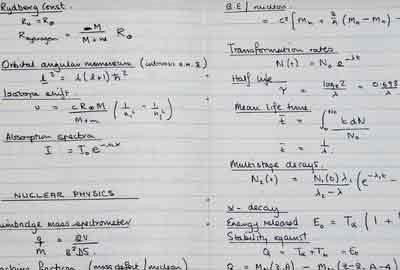 Rydberg Const.
R₀ = R∞
R hydrogen = M / M + m R∞
Orbital angular momentum (intrinsic
l² = l(l+1)ħ²
Isotope shift.
ν = cR∞M / M+m (1/n₁² - 1/n₂²)
Absorption spectra
I = I₀e
NUCLEAR PHYSICS
mass spectrometer
q/m = 2V / B²DS
fraction (mass defect / nucleon)
B.E / nucleon.
= c² [Mₙ + Z/A (M_H - Mₙ) -
Transformation rates.
N(t) = N₀ e^-λt
Half life
τ = logₑ2 / λ = 0.693 / λ
Mean life time
t̄ = ∫₀^N₀ t dN / N₀
t̄ = 1/λ
Multistage decays.
N₂(t) = N₁(0) λ₁ / λ₂ - λ₁ (e^-λ₁t -
α - decay
Energy released E₀ = Tα (1 +
Stability against
Q = Tα + T = E₀
Q = M (Z,A) - M (Z-2, A-4)